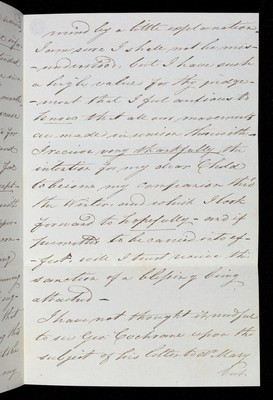 mind by a little explanation.
I am sure I shall not be mis-
-understood. but I have such
a high value for thy judge-
-ment that I feel anxious to
know that all our movements
are made in unison therewith -
I receive very thankfully the
intention for my dear Child
to become my companion this
the Winter, and which I look
forward to hopefully - and if
permitted to be carried into ef-
-fect, will I trust receive the
sanction of a blessing being
attached -
I have not thought it needful
to see Geo Cochrane upon the
subject of his letter to Mary